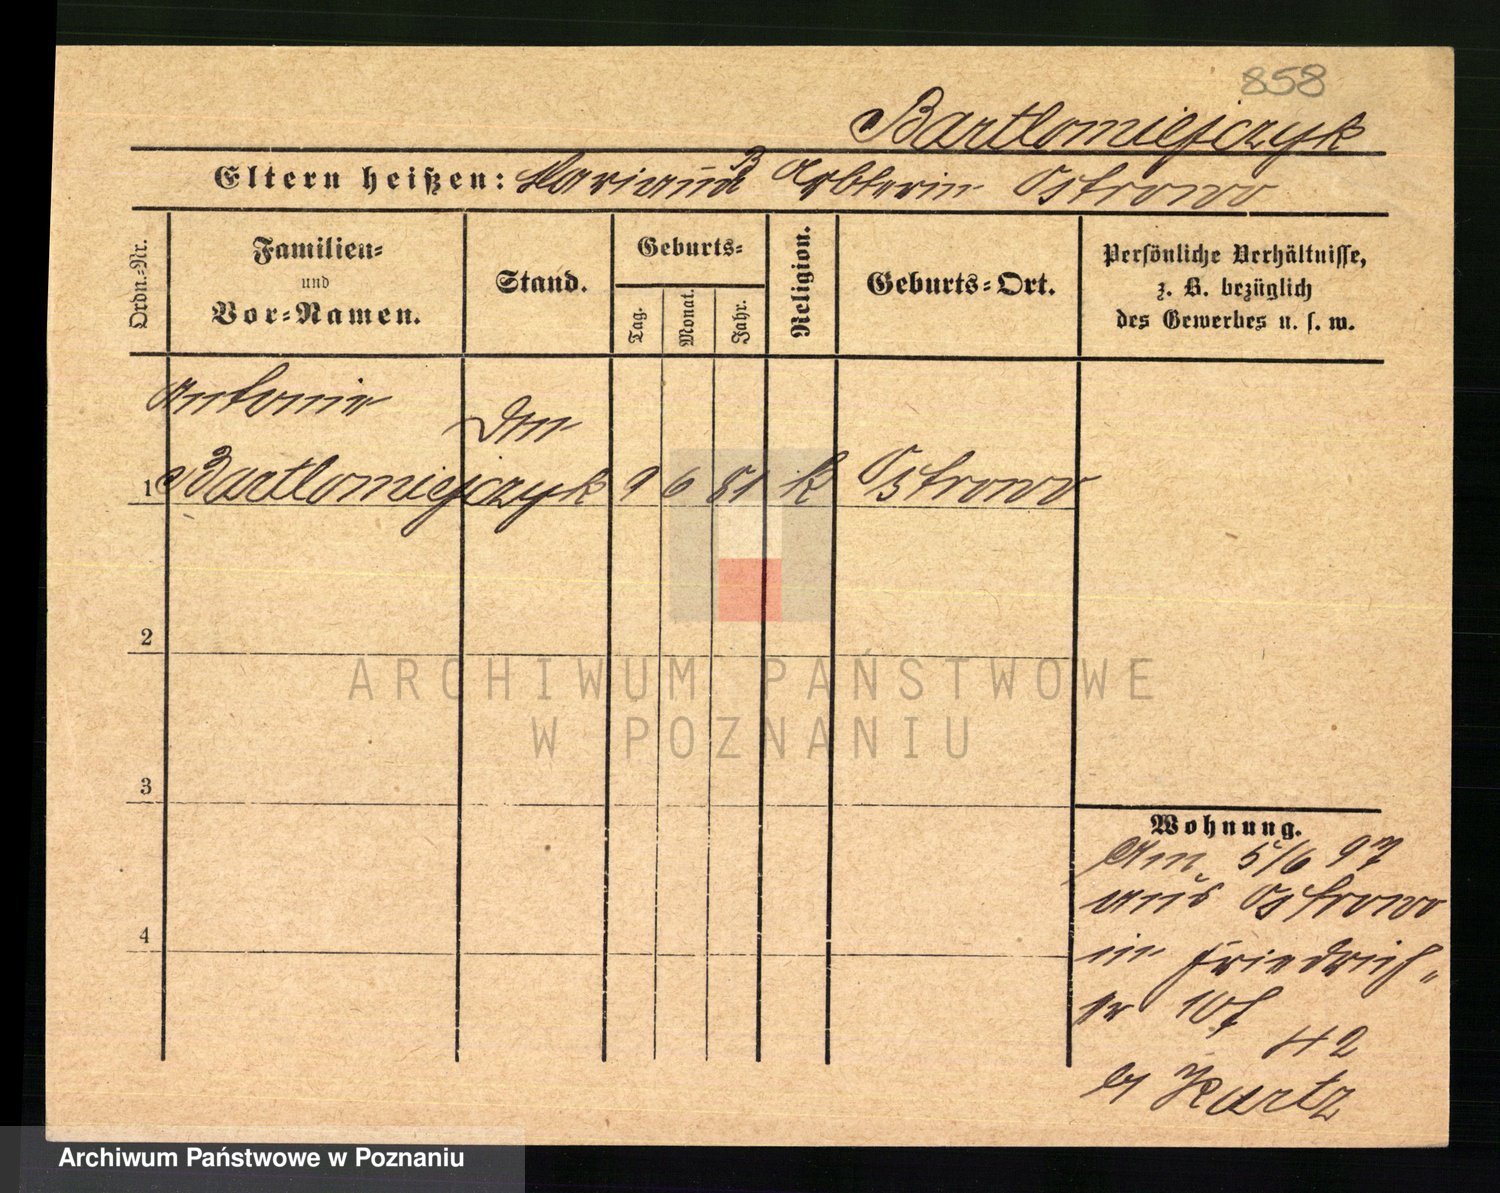 858
Bartlomiejczyk
Eltern heißen: Marianna B Arbterin Ostrowo
Ordn.-Nr.
Familien-
und
Vor-Namen.
Stand.
Geburts-
Tag.
Monat.
Jahr.
Religion.
Geburts-Ort.
Persönliche Verhältnisse,
z. B. bezüglich
des Gewerbes u. s. w.
Antonie
1 Bartlomiejczyk 9 6 81 k Ostrowo
2
3
4
Wohnung.
Am 5/6 97
aus Ostrowo
in Friedrich-
str 10
H 2
b/ Kurtz
ARCHIWUM PAŃSTWOWE
W POZNANIU
Archiwum Państwowe w Poznaniu